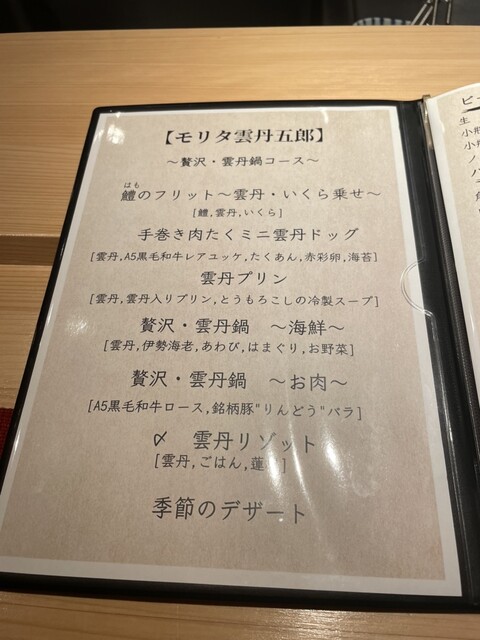 【モリタ雲丹五郎】
～贅沢・雲丹鍋コース～
はも
鱧のフリット～雲丹・いくら乗せ～
[鱧,雲丹,いくら]
手巻き肉たくミニ雲丹ドッグ
[雲丹,A5黒毛和牛レアユッケ,たくあん,赤彩卵,海苔]
雲丹プリン
[雲丹,雲丹入りプリン,とうもろこしの冷製スープ]
贅沢・雲丹鍋　～海鮮～
[雲丹,伊勢海老,あわび,はまぐり,お野菜]
贅沢・雲丹鍋　～お肉～
[A5黒毛和牛ロース,銘柄豚"りんどう"バラ]
〆　雲丹リゾット
[雲丹,ごはん,蓮
季節のデザート
ビー
生
小瓶
小瓶
ノ
ハ